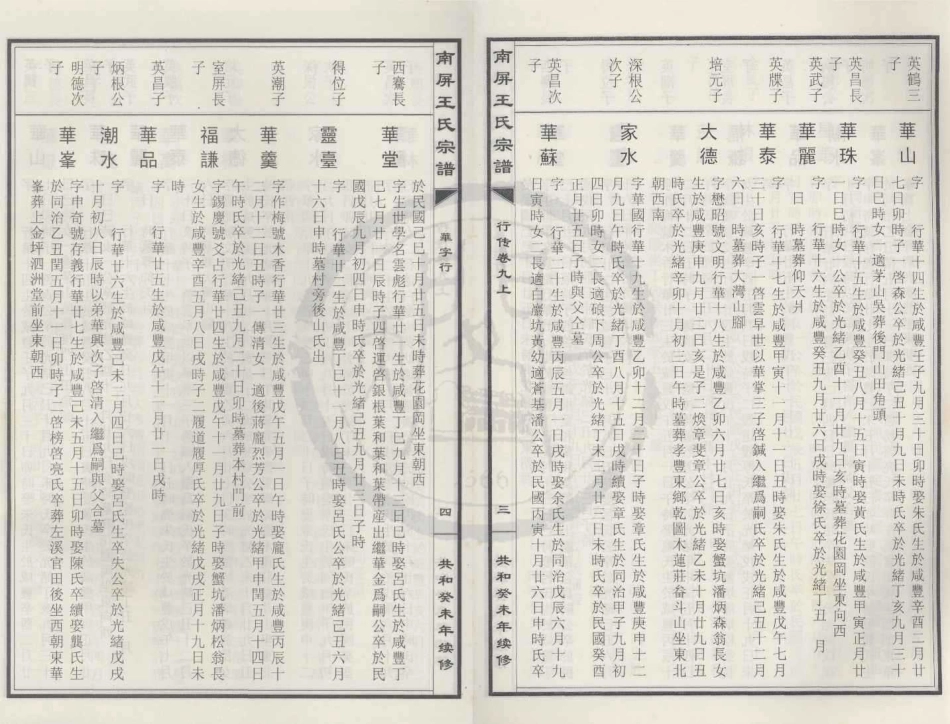 英鶴三
子
華山
字 行華十四生於咸豐壬子九月三十日卯時娶朱氏生於咸豐辛酉二月廿
七日卯時子一啓森公卒於光緒己丑十月九日未時氏卒於光緒丁亥九月三十
日巳時女一適茅山吳葬後門山田角頭
英昌長
子
華珠
字 行華十五生於咸豐癸丑八月十五日寅時娶黃氏生於咸豐甲寅正月廿
一日巳時女一公卒於光緒乙酉十一月廿九日亥時墓葬花園岡坐東向西
英武子
華麗
字 行華十六生於咸豐癸丑九月廿六日戌時娶徐氏卒於光緒丁丑 月
日 時墓葬仰天爿
英牒子
華泰
字 行華十七生於咸豐甲寅十一月十一日丑時娶朱氏生於咸豐戊午七月
三十日亥時子一啓雲早世以華掌三子啓鋮入繼爲嗣氏卒於光緒己丑十二月
六日 時墓葬大灣山腳
培元子
大德
字懋昭號文明行華十八生於咸豐乙卯六月廿七日亥時娶蟹坑潘炳森翁長女
生於咸豐庚申九月廿二日亥是子二煥章斐章公卒於光緒乙未十月廿九日丑
時氏卒於光緒辛卯十月初三日午時墓葬孝豐東鄉乾圖木蓮莊畚斗山坐東北
朝西南
深根公
次子
家水
字華國行華十九生於咸豐乙卯十二月二十日子時娶章氏生於咸豐庚申十二
月九日午時氏卒於光緒丁酉八月十五日戌時續娶章氏生於同治甲子九月初
四日卯時女二長適硠下周公卒於光緒丁未三月廿三日未時氏卒於民國癸酉
正月廿五日子時與父仝墓
英昌次
子
華蘇
字 行華二十生於咸豐丙辰五月一日戌時娶余氏生於同治戊辰六月十九
日寅時女二長適白嚴坑黃幼適蒼基潘公卒於民國丙寅十月廿六日申時氏卒
南屏王氏宗譜
行传卷九上
三
共和癸未年续修
南屏王氏宗譜
華字行
四
共和癸未年续修
於民國己巳十月廿五日未時葬花園岡坐東朝西
西騫長
子
華堂
字生世學名雲彪行華廿一生於咸豐丁巳九月十三日巳時娶呂氏生於咸豐丁
巳七月廿一日辰時子四啓運啓銀根葉和葉和葉帶産出繼華金爲嗣公卒於民
國戊辰九月初四日申時氏卒於光緒己丑九月廿三日子時
得位子
靈臺
字 行華廿二生於咸豐丁巳十一月八日丑時娶呂氏公卒於光緒己丑六月
十六日申時墓村旁後山氏出
英潮子
華羹
字作梅號木香行華廿三生於咸豐戊午五月一日午時娶龐氏生於咸豐丙辰十
二月十二日丑時子一傳清女一適後蔣龐烈芳公卒於光緒甲申閏五月十四日
午時氏卒於光緒己丑九月二十日卯時墓葬本村門前
室屏長
子
福謙
字錫慶號爻占行華廿四生於咸豐戊午十一月廿九日子時娶蟹坑潘炳松翁長
女生於咸豐辛酉五月八日戌時子二履道履厚氏卒於光緒戊戌正月十九日未
時
英昌子
華品
字 行華廿五生於咸豐戊午十一月廿一日戌時
炳根公
子
潮水
字 行華廿六生於咸豐己未二月四日巳時娶呂氏生卒失公卒於光緒戊戌
十月初八日辰時以弟華興次子啓清入繼爲嗣與父合墓
明德次
子
華峯
字申奇號存義行華廿七生於咸豐己未五月十五日卯時娶陳氏卒續娶龔氏生
於同治乙丑閏五月十一日卯時子二啓榜啓亮氏卒葬左溪官田後坐西朝東華
峯葬上金坪泗洲堂前坐東朝西